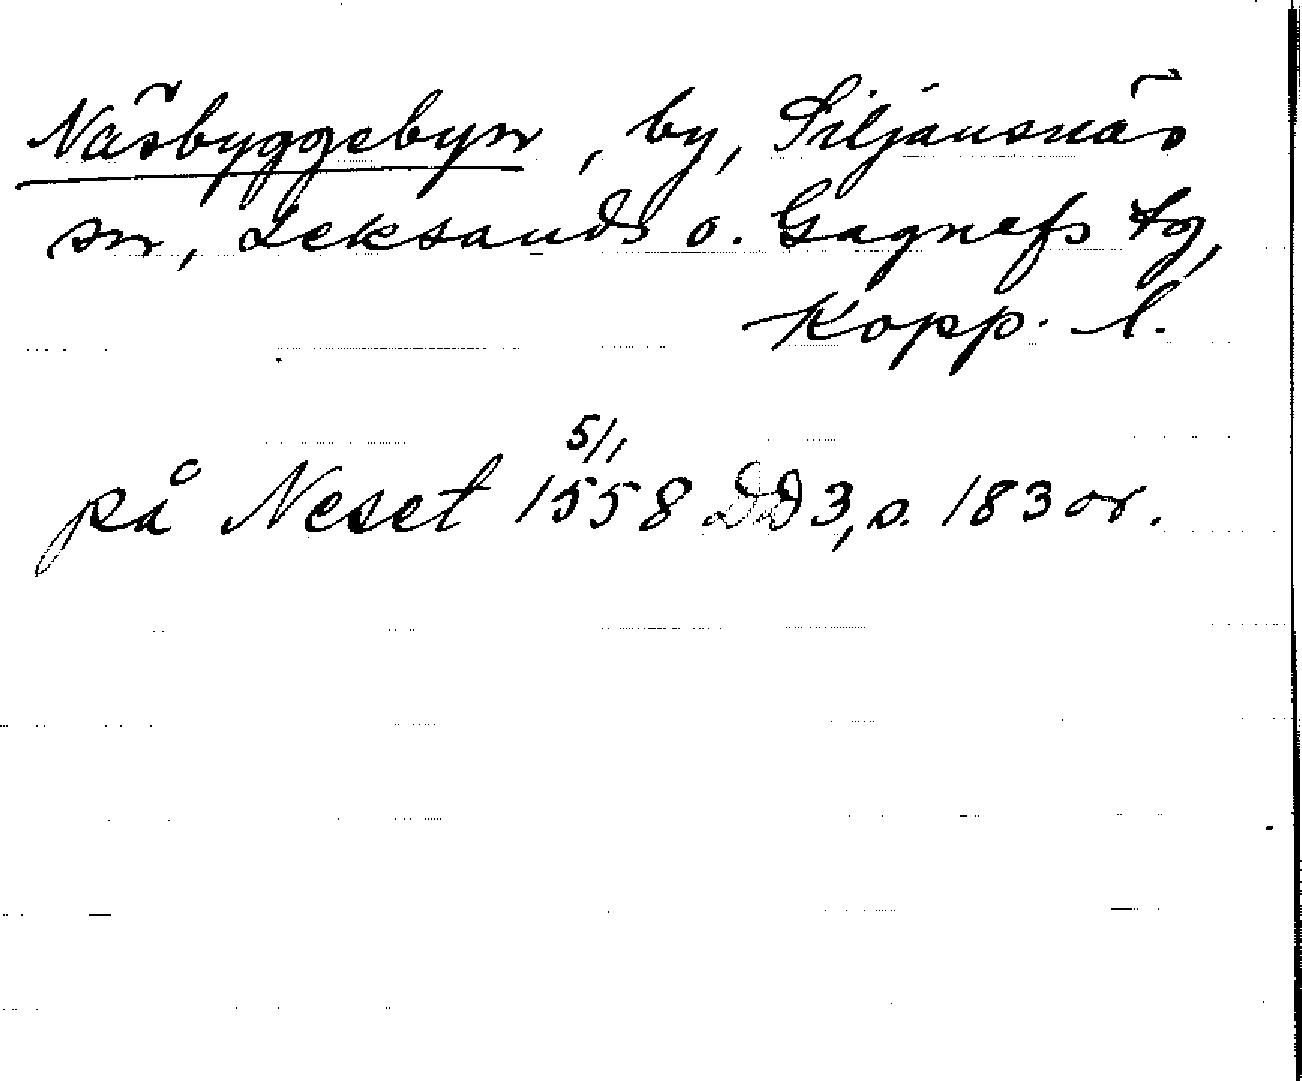 Näsbyggebyn, by, Siljansnäs
sn, Leksands o. Gagnefs tg,
Kopp. l.
på Neset 5/1 1558 DD 3, s. 183 or.